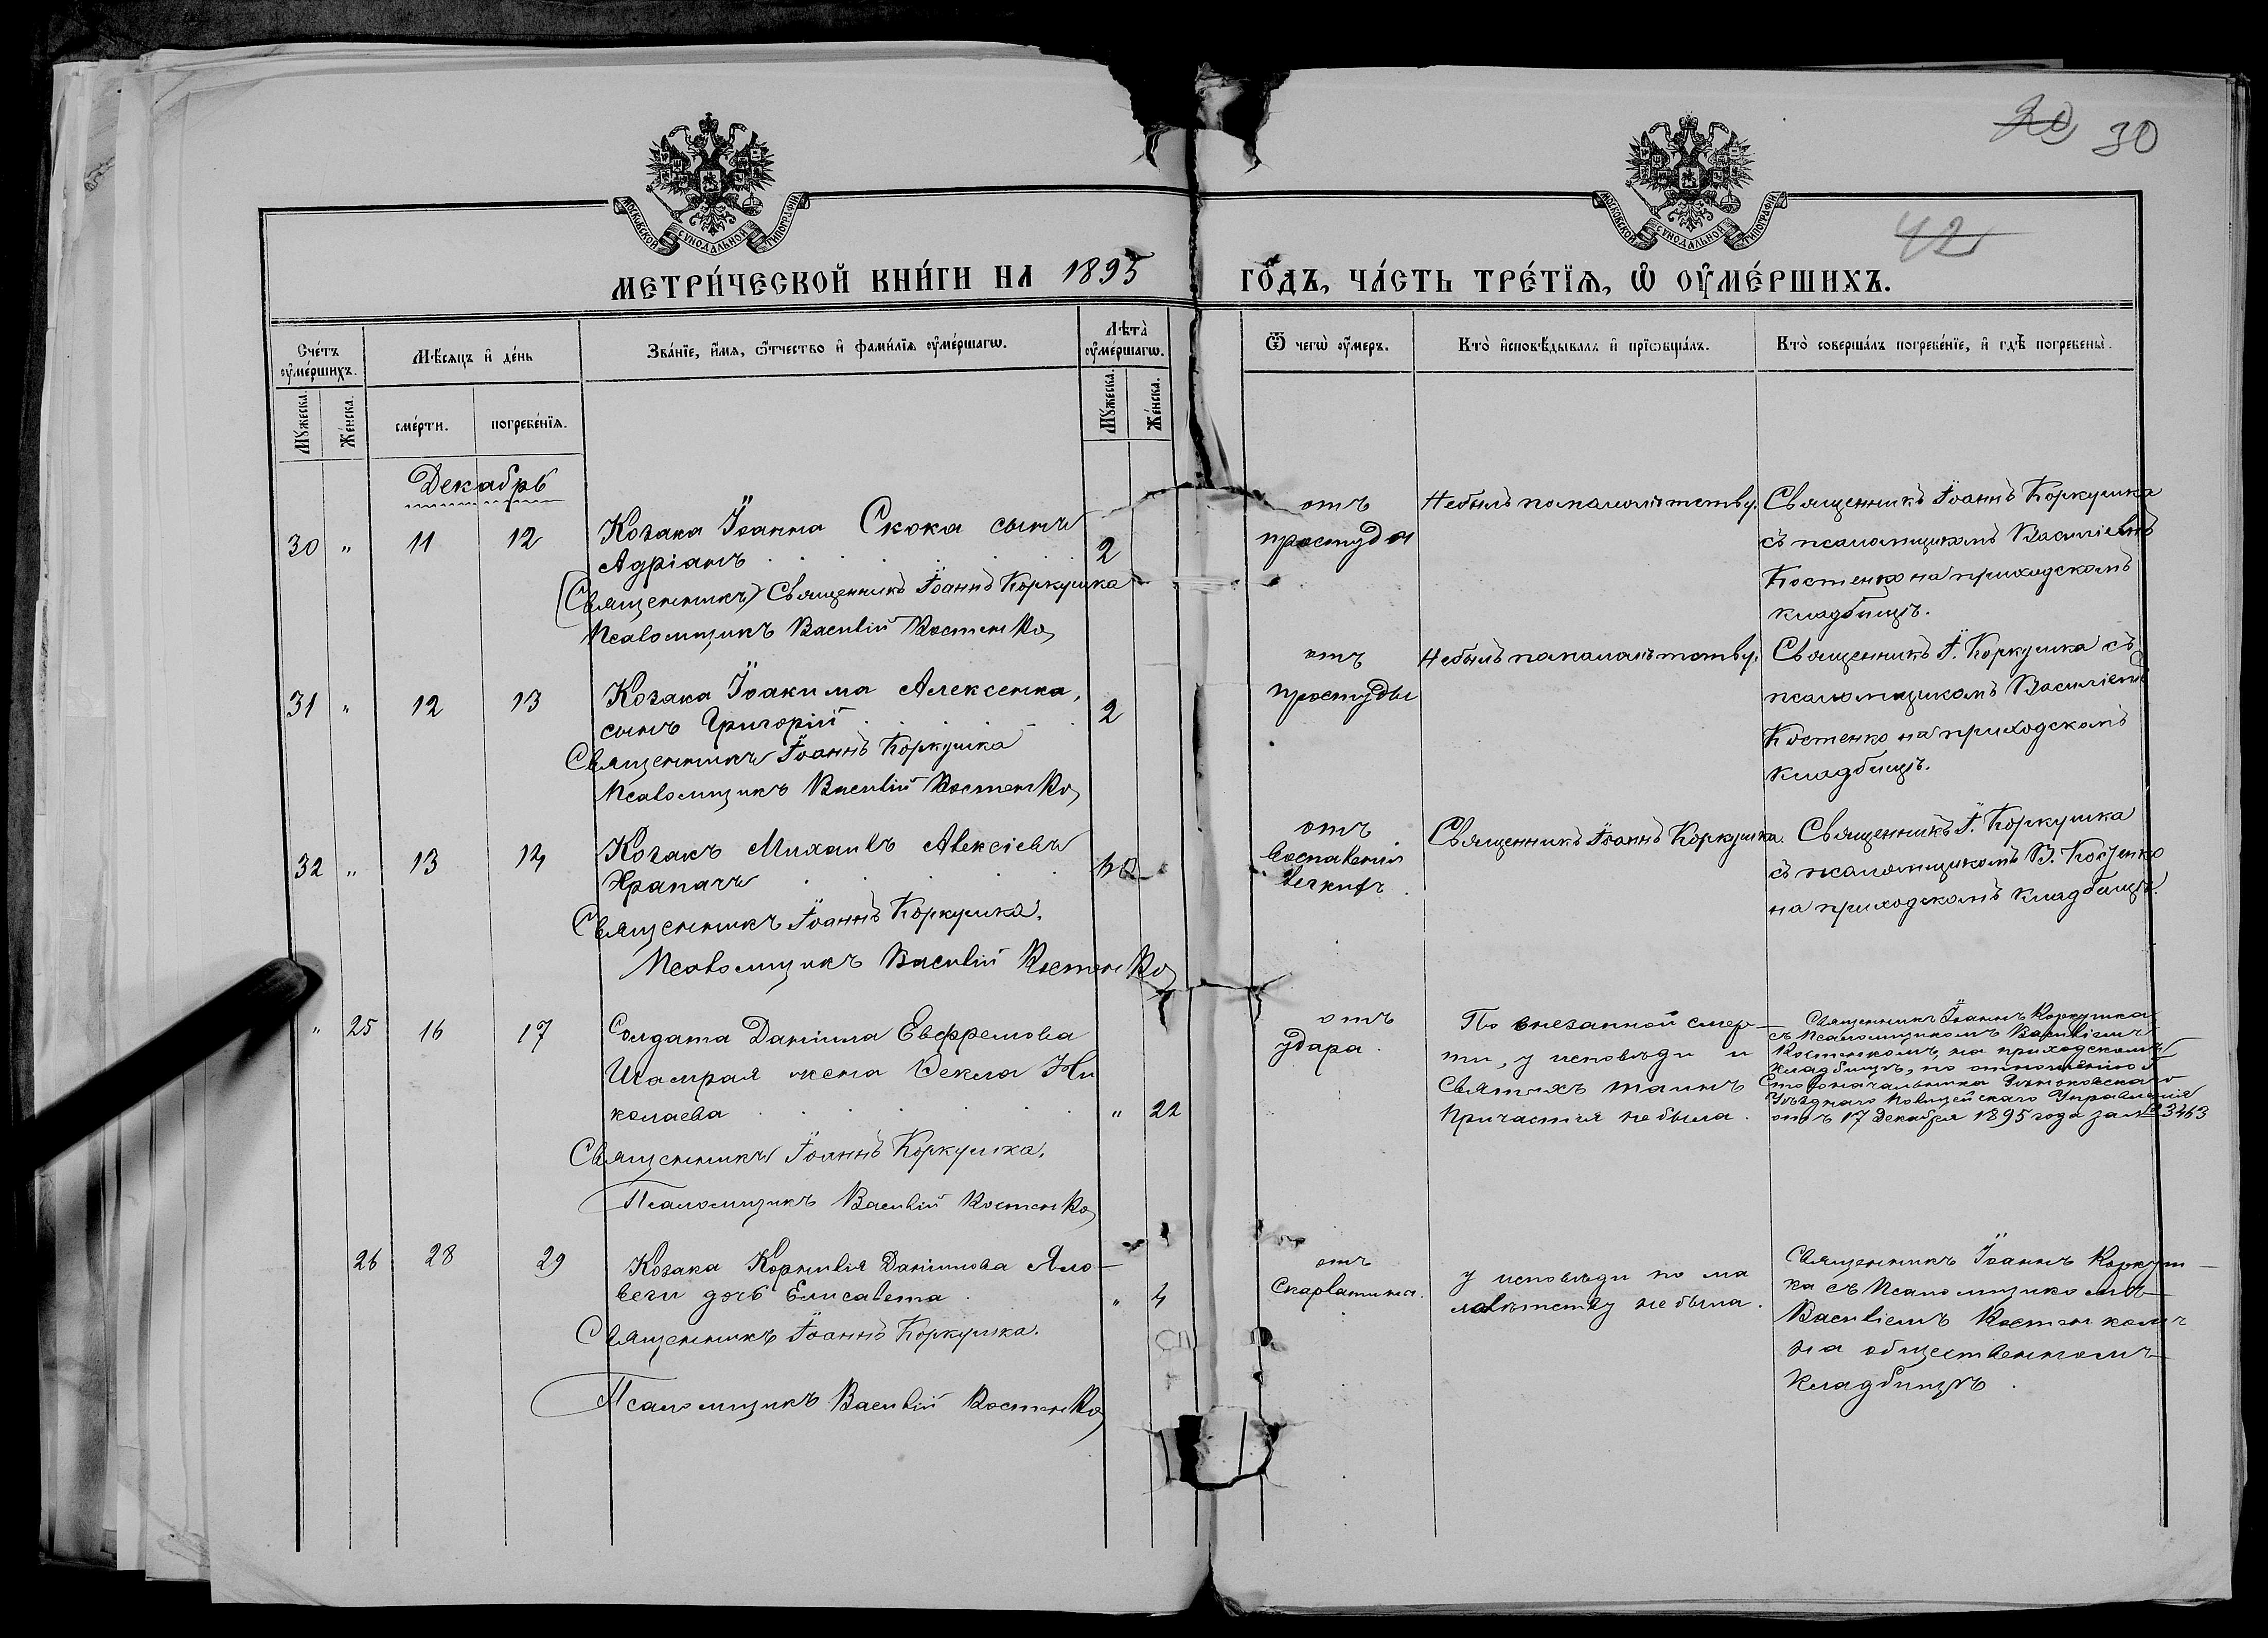 20 30
42
МОСКОВСКОЙ СУНОДАЛЬНОЙ ТИПОГРАФІИ
МОСКОВСКОЙ СУНОДАЛЬНОЙ ТИПОГРАФІИ
МЕТРИ́ЧЕСКОЙ КНИ́ГИ НА 1895 ГО́ДЪ, ЧА́СТЬ ТРЕ́ТЇѦ, Ѡ҆ ОУ҆МЕ́РШИХЪ.
Сче́тъ оу҆ме́ршихъ.
Мѣ́сяцъ и҆ де́нь
Зва́нїе, и҆́мѧ, ѻ҆́тчество и҆ фами́лїѧ оу҆ме́ршагѡ.
Лѣта̀ оу҆ме́ршагѡ.
Ѿ чегѡ̀ оу҆́меръ.
Кто̀ и҆сповѣ́дывалъ и҆ прїѡбща́лъ.
Кто̀ соверша́лъ погребе́нїе, и҆ гдѣ̀ погребены̀.
Мꙋ́жеска.
Же́нска.
сме́рти.
погребе́нїѧ.
Мꙋ́жеска.
Же́нска.
Декабрь
30 " 11 12
Козака Іоанна Скока сынъ
Адріанъ 2
(Священникъ) Священникъ Іоаннъ Коркушка
Псаломщикъ Василій Костенко
отъ
простуды
Небылъ по малолѣтству.
Священникъ Іоаннъ Коркушка
съ псаломщикомъ Василіемъ
Костенко на приходскомъ
кладбищѣ.
31 " 12 13
Козака Іоакима Алексенка,
сынъ Григорій 2
Священникъ Іоаннъ Коркушка
Псаломщикъ Василій Костенко
отъ
простуды
Небылъ по малолѣтству.
Священникъ І. Коркушка съ
псаломщикомъ Василіемъ
Костенко на приходскомъ
кладбищѣ.
32 " 13 14
Козакъ Михаилъ Алексіевъ
Храпачъ
Священникъ Іоаннъ Коркушка.
Псаломщикъ Василій Костенко
отъ
воспаленія
легкихъ
Священникъ Іоаннъ Коркушка.
Священникъ І. Коркушка
съ псаломщикомъ В. Костенко
на приходскомъ кладбищѣ.
" 25 16 17
Солдата Даніила Евфремова
Шамрая жена Ѳекла Ни
колаева " 22
Священникъ Іоаннъ Коркушка.
Псаломщикъ Василій Костенко
отъ
удара
По внезапной смер-
ти, у исповѣди и
Святыхъ таинъ
причастія не была.
Священникъ Іоаннъ Коркушка
съ Псаломщикомъ Василіемъ
Костенкомъ, на приходскомъ
кладбищѣ, по отношенію
Столоначальника
Уѣзднаго Полицейскаго Управленія
отъ 17 Декабря 1895 года за № 3463
26 28 29
Козака Корнилія Даніилова Яло-
веги дочь Елисавета " 4
Священникъ Іоаннъ Коркушка.
Псаломщикъ Василій Костенко
отъ
Скарлатины.
у исповѣди по ма
лолѣтству не была.
Священникъ Іоаннъ Коркуш-
ка съ Псаломщикомъ
Василіемъ Костенкомъ
на общественномъ
Кладбищѣ.